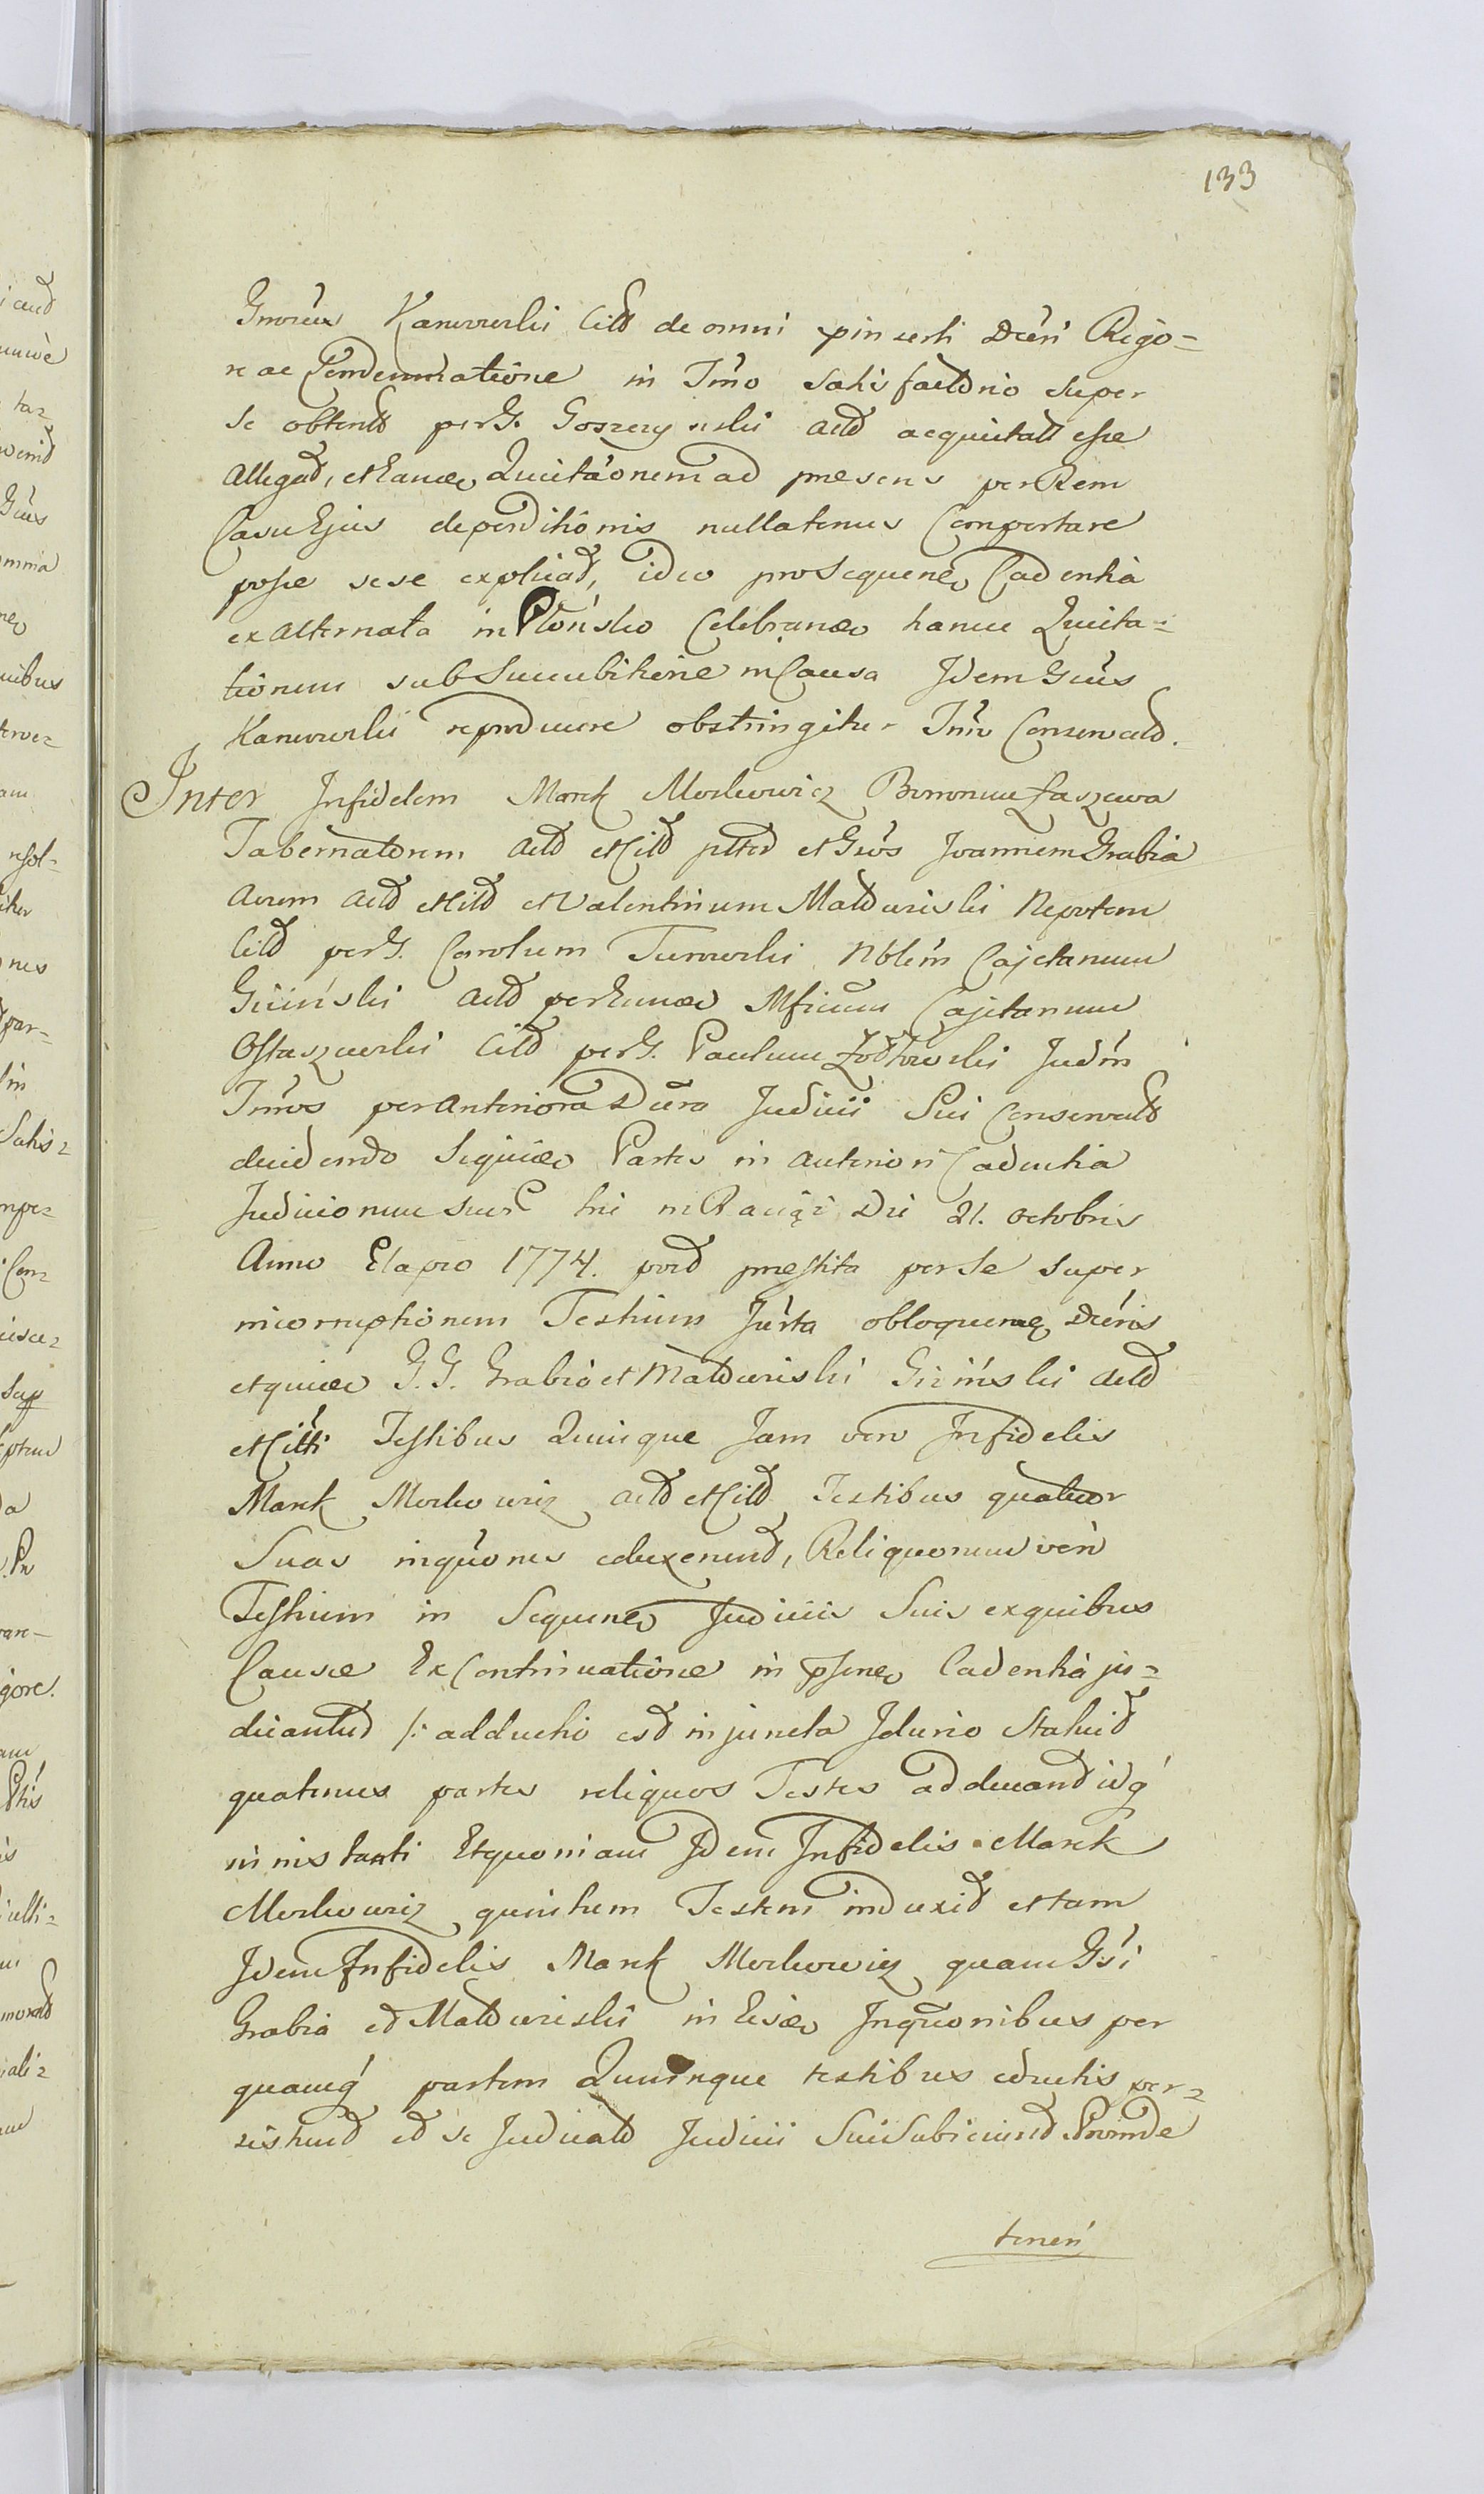 133
Kanwowski Citt de omni pinserti Dcti Rigo=
re ac Condemnatione in Tmo satisfactorio super
se obtent per G. Goszczynski Actt acquietatt esse
Allegatt, et hancce Quietaonem ad praesens per Rem
Casu Ejus deperditionis nullatenus Comportare
posse sese explicatt, ideo pro Sequenece Cadentia
ex alternata in Płońsko Celebrance hance Quieta=
tionem sub Succubitione in Causa Idem Gnus
Kanwowski reproducere obstringitur Tmo Conservatt.
Inter Infidelem Marek Morkowicz Bonorum Łaszewa
Tabernatorem Actt et Citt et Gnos Joannem Grabia
Avum Actt et Citt et Valentinum Matdwiski Nepotem
Citt per G. Carolum Turowski Nblem Cajetanum
Giziński Actt per Mficum Cajetanum
Ostaszewski Citt per G. Paulum Żołtowski Judm
Tmos per Anteriora Dcra Judicii Sui Conservatt
decidendo Siquidem Partes in anteriori Cadentia
Judiciorum suor hic in Raciąż Die 21. octobris
Anno Elapso 1774. praestita per se super
incorruptionem Testium Jurta obloquence Dcris
G. G. Grabia et Matdwiski Giziński Actt
et Citti Testibus Quinque Jam vero Infidelis
Marek Morkowicz Actt et Citt Testibus quatuor
Suas inqnones eduxerunt, Reliquorum vero
Testium in Sequence Judiciis Suis ex quibus
Causa Ex Continuatione in psence Cadentia ju=
dicantur /: adductio est injuncta Idcirco Statuit
quatenus partes reliquos Testes adducant idq
in instanti Et quoniam Idem Infidelis Marek
Morkowicz quintum Testem induxit et tam
Idem Infidelis Marek Morkowicz quam Gsi
Grabia et Matdwiski in Inqnonibus per
quamq partem Quinque testibus eductis per=
sistunt et se Judicatt Judicii Sui Subiciunt Proinde
teneri